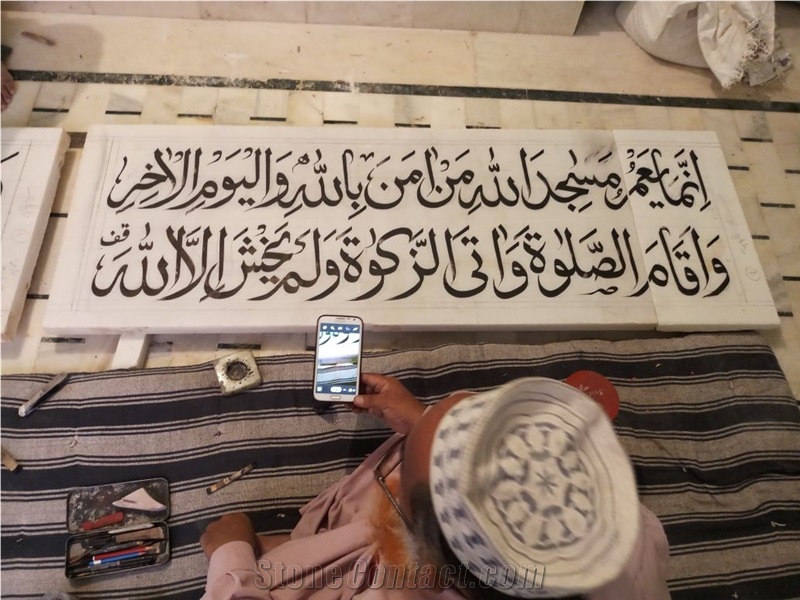 اِنَّمَا یَعۡمُرُ مَسٰجِدَ اللّٰہِ مَنۡ اٰمَنَ بِاللّٰہِ وَالۡیَوۡمِ الۡاٰخِرِ
وَاَقَامَ الصَّلٰوۃَ وَاٰتَی الزَّکٰوۃَ وَلَمۡ یَخۡشَ اِلَّا اللّٰہَ قف
StoneContact.com